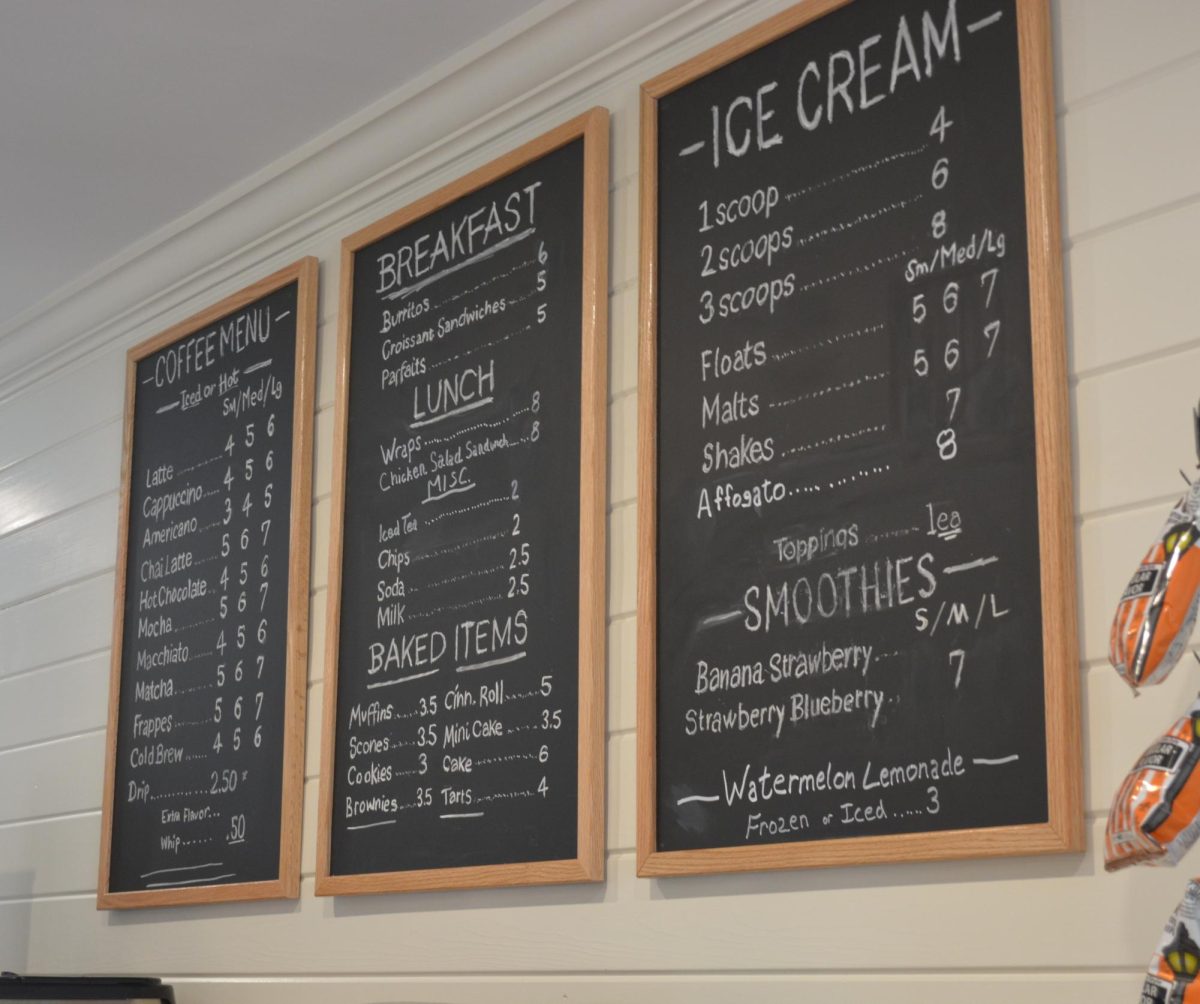 -COFFEE MENU-
-Iced or Hot-
Sm/Med/Lg
Latte........4 5 6
Cappuccino....4 5 6
Americano....3 4 5
Chai Latte....5 6 7
Hot Chocolate...4 5 6
Mocha........5 6 7
Macchiato....4 5 6
Matcha.......5 6 7
Frappes......5 6 7
Cold Brew.....4 5 6
Drip.........2.50 *
Extra Flavor...
Whip...... .50
BREAKFAST
Burritos........6
Croissant Sandwiches....5
Parfaits........5
LUNCH
Wraps........8
Chicken Salad Sandwich....8
MISC.
Iced Tea........2
Chips........2
Soda........2.5
Milk........2.5
BAKED ITEMS
Muffins....3.5 Cinn. Roll....5
Scones....3.5 Mini Cake....3.5
Cookies....3 Cake....6
Brownies...3.5 Tarts....4
-ICE CREAM-
1 scoop........4
2 scoops........6
3 scoops........8
Sm/Med/Lg
Floats........5 6 7
Malts........5 6 7
Shakes........7
Affogato........8
Toppings........1ea
-SMOOTHIES-
S/M/L
Banana Strawberry... 7
Strawberry Blueberry..
-Watermelon Lemonade-
Frozen or Iced.....3